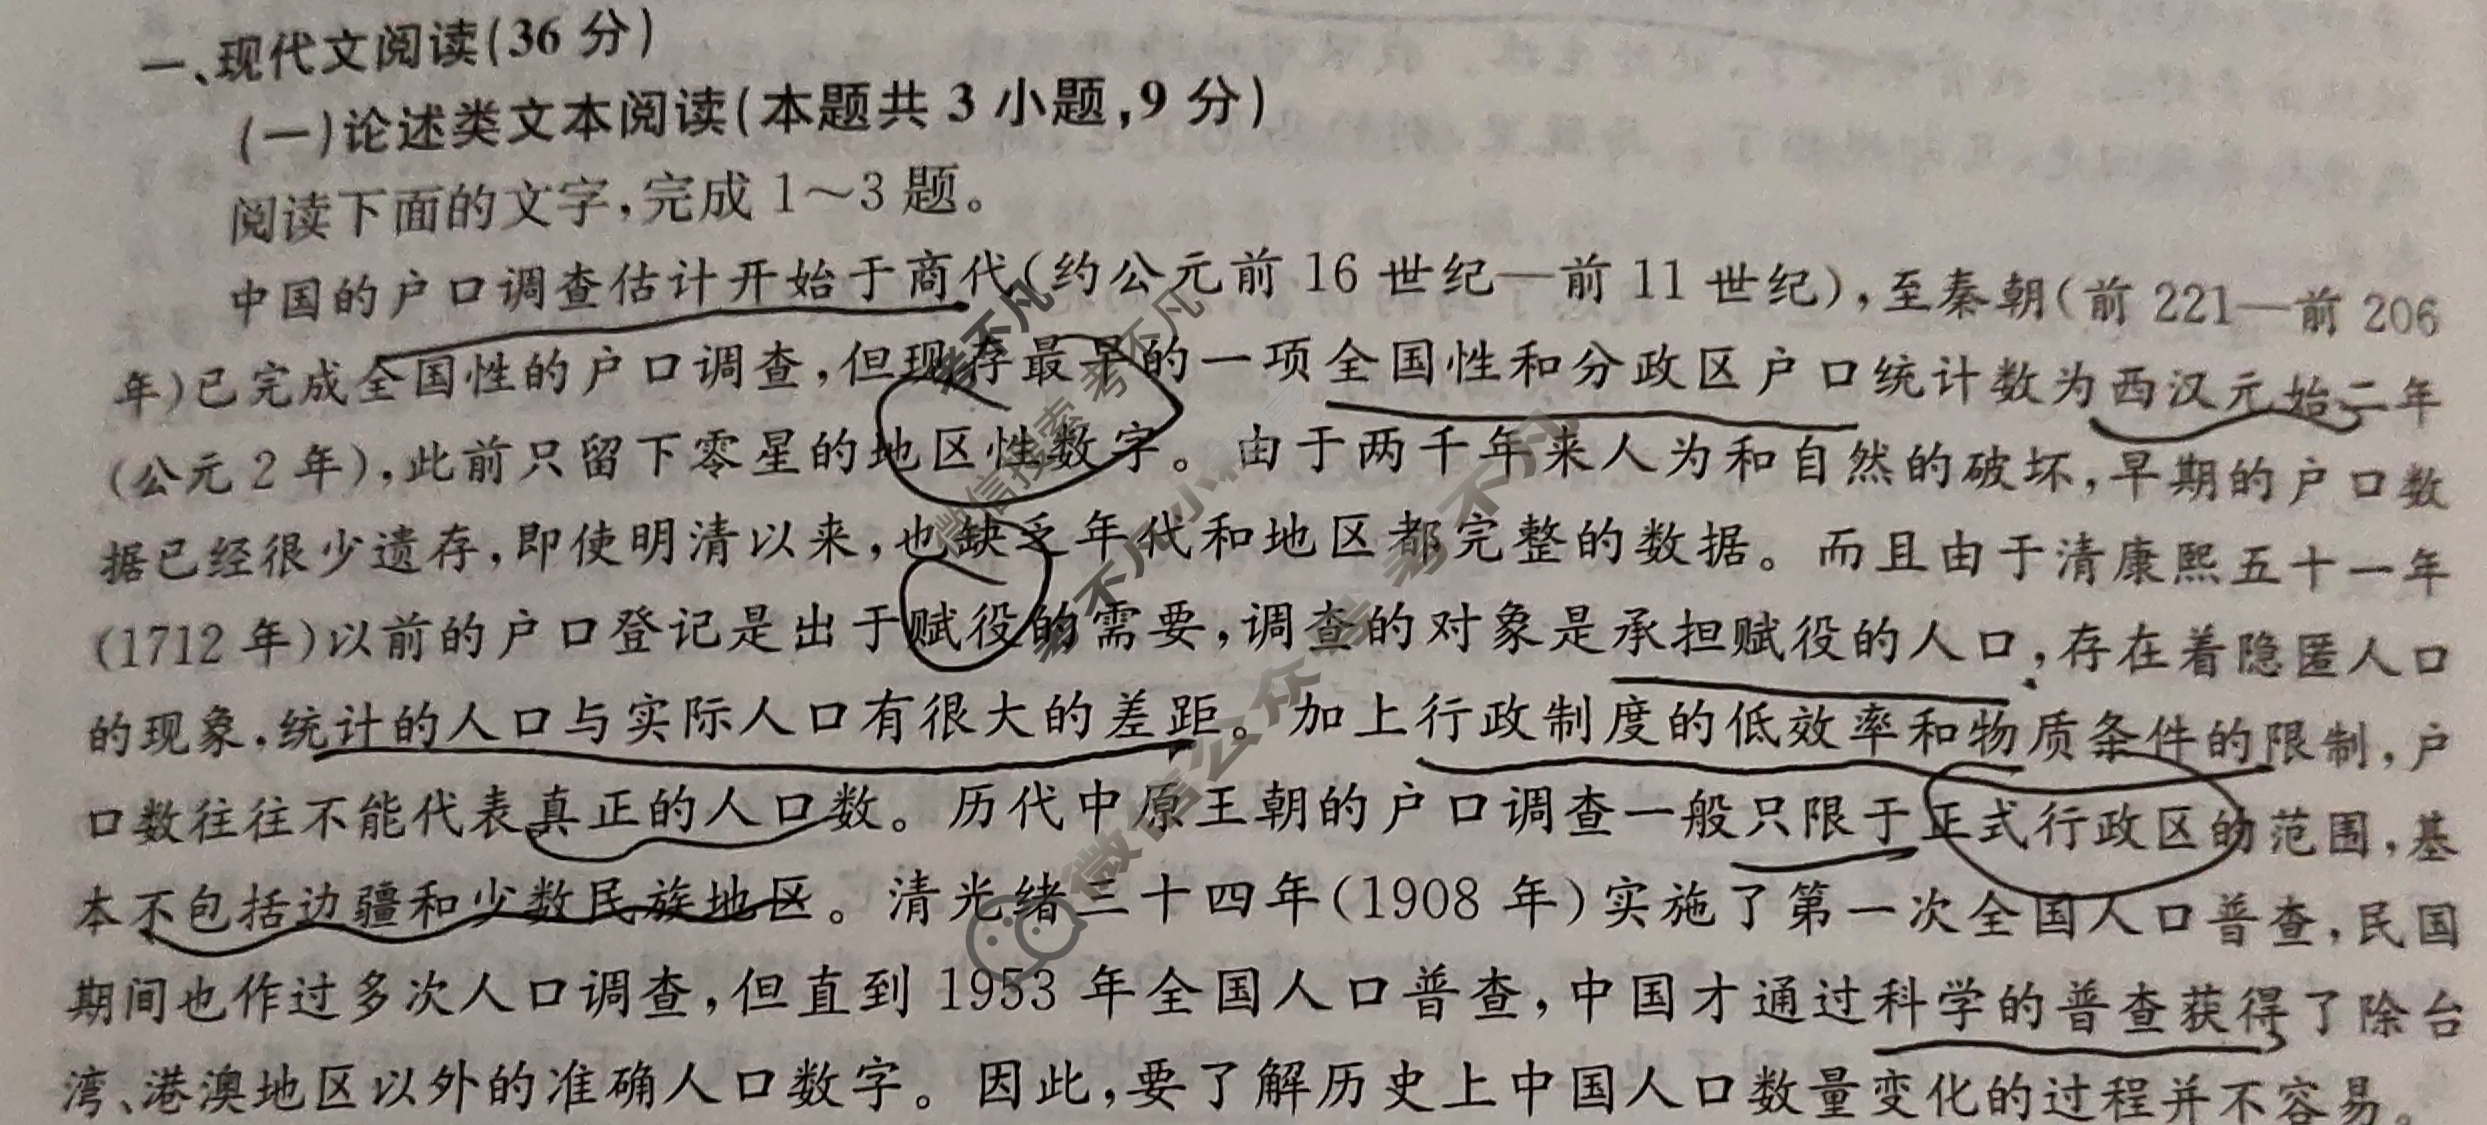 一、现代文阅读(36分)
(一)论述类文本阅读(本题共3小题,9分)
阅读下面的文字,完成1～3题。
中国的户口调查估计开始于商代(约公元前16世纪—前11世纪),至秦朝(前221—前206
年)已完成全国性的户口调查,但现存最早的一项全国性和分政区户口统计数为西汉元始二年
(公元2年),此前只留下零星的地区性数字。由于两千年来人为和自然的破坏,早期的户口数
据已经很少遗存,即使明清以来,也缺乏年代和地区都完整的数据。而且由于清康熙五十一年
(1712年)以前的户口登记是出于赋役的需要,调查的对象是承担赋役的人口,存在着隐匿人口
的现象,统计的人口与实际人口有很大的差距。加上行政制度的低效率和物质条件的限制,户
口数往往不能代表真正的人口数。历代中原王朝的户口调查一般只限于正式行政区的范围,基
本不包括边疆和少数民族地区。清光绪三十四年(1908年)实施了第一次全国人口普查,民国
期间也作过多次人口调查,但直到1953年全国人口普查,中国才通过科学的普查获得了除台
湾、港澳地区以外的准确人口数字。因此,要了解历史上中国人口数量变化的过程并不容易。
考不凡
考不凡
微信搜索
考不凡
微信公众